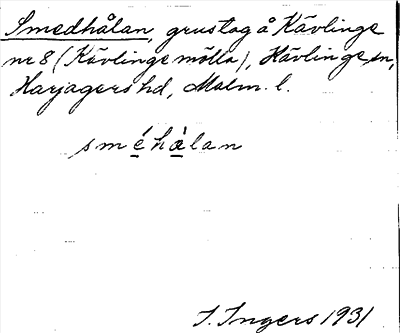 Smedhålan, grustag å Kävlinge
nr 8 (Kävlinge mölla), Kävlinge sn,
Harjagers hd, Malm. l.
sméhålan
I. Ingers 1931